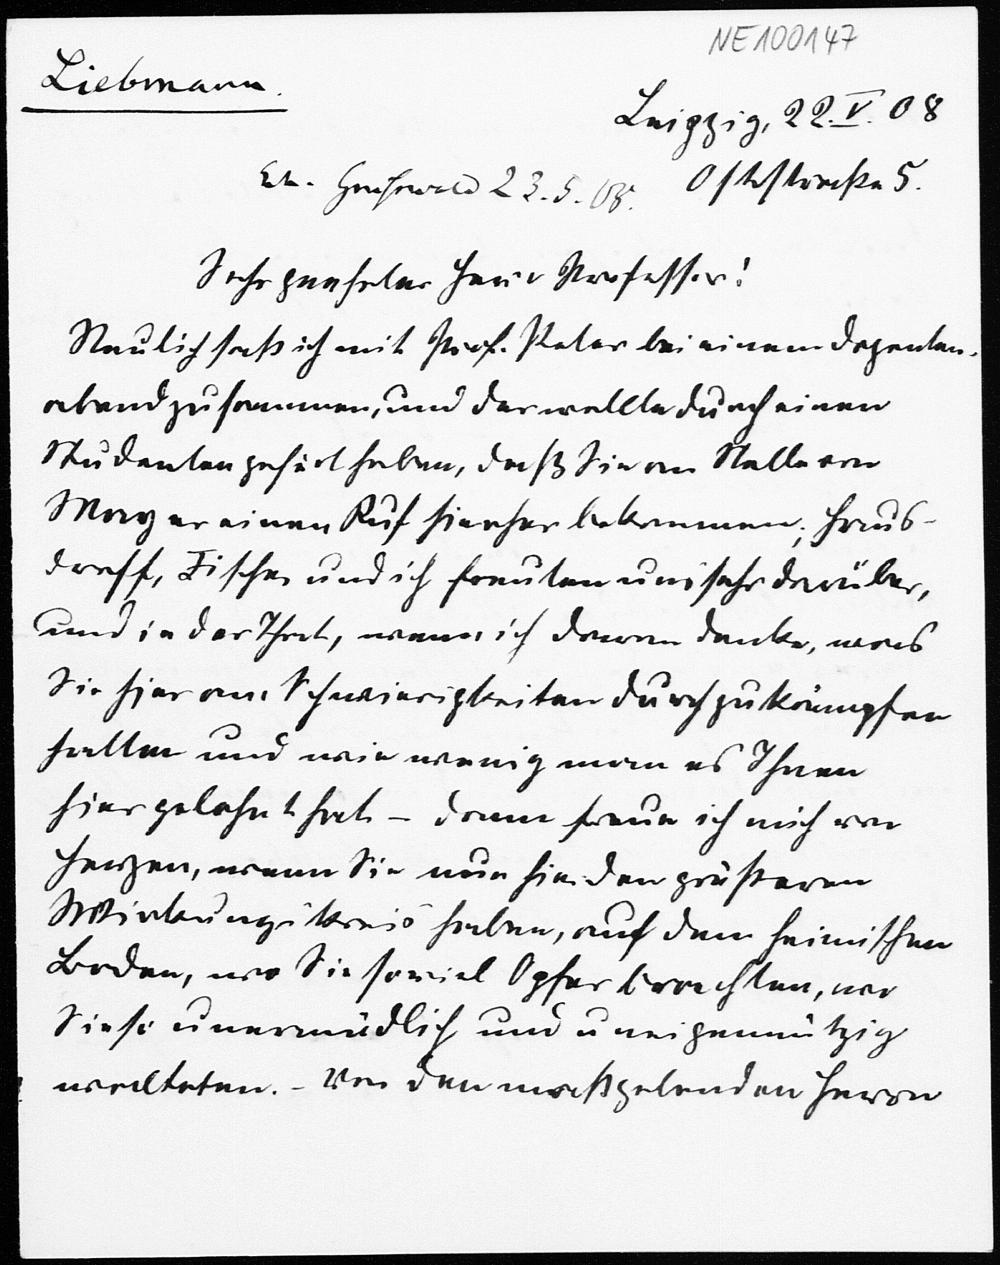 NE100147
Liebmann.
Leipzig, 22. V. 08
Erh. Greifswald 23.5.08.
Oststraße 5.
Sehr geehrter Herr Professor!
Neulich saß ich mit Prof. Peter bei einem Dozenten-
abend zusammen, und der wollte durch einen
Studenten gehört haben, daß Sie an Stelle von
Mayer einen Ruf hierher bekommen; Haus-
dorff, Fischer und ich freuten uns sehr darüber,
und in der That, wenn ich daran denke, was
Sie hier an Schwierigkeiten durchzukämpfen
hatten und wie wenig man es Ihnen
hier gelohnt hat – dann freue ich mich von
Herzen, wenn Sie nun hier den größeren
Wirkungskreis haben, auf dem heimischen
Boden, wo Sie soviel Opfer brachten, wo
Sie so unermüdlich und uneigennützig
walteten. – Von den maßgebenden Herrn